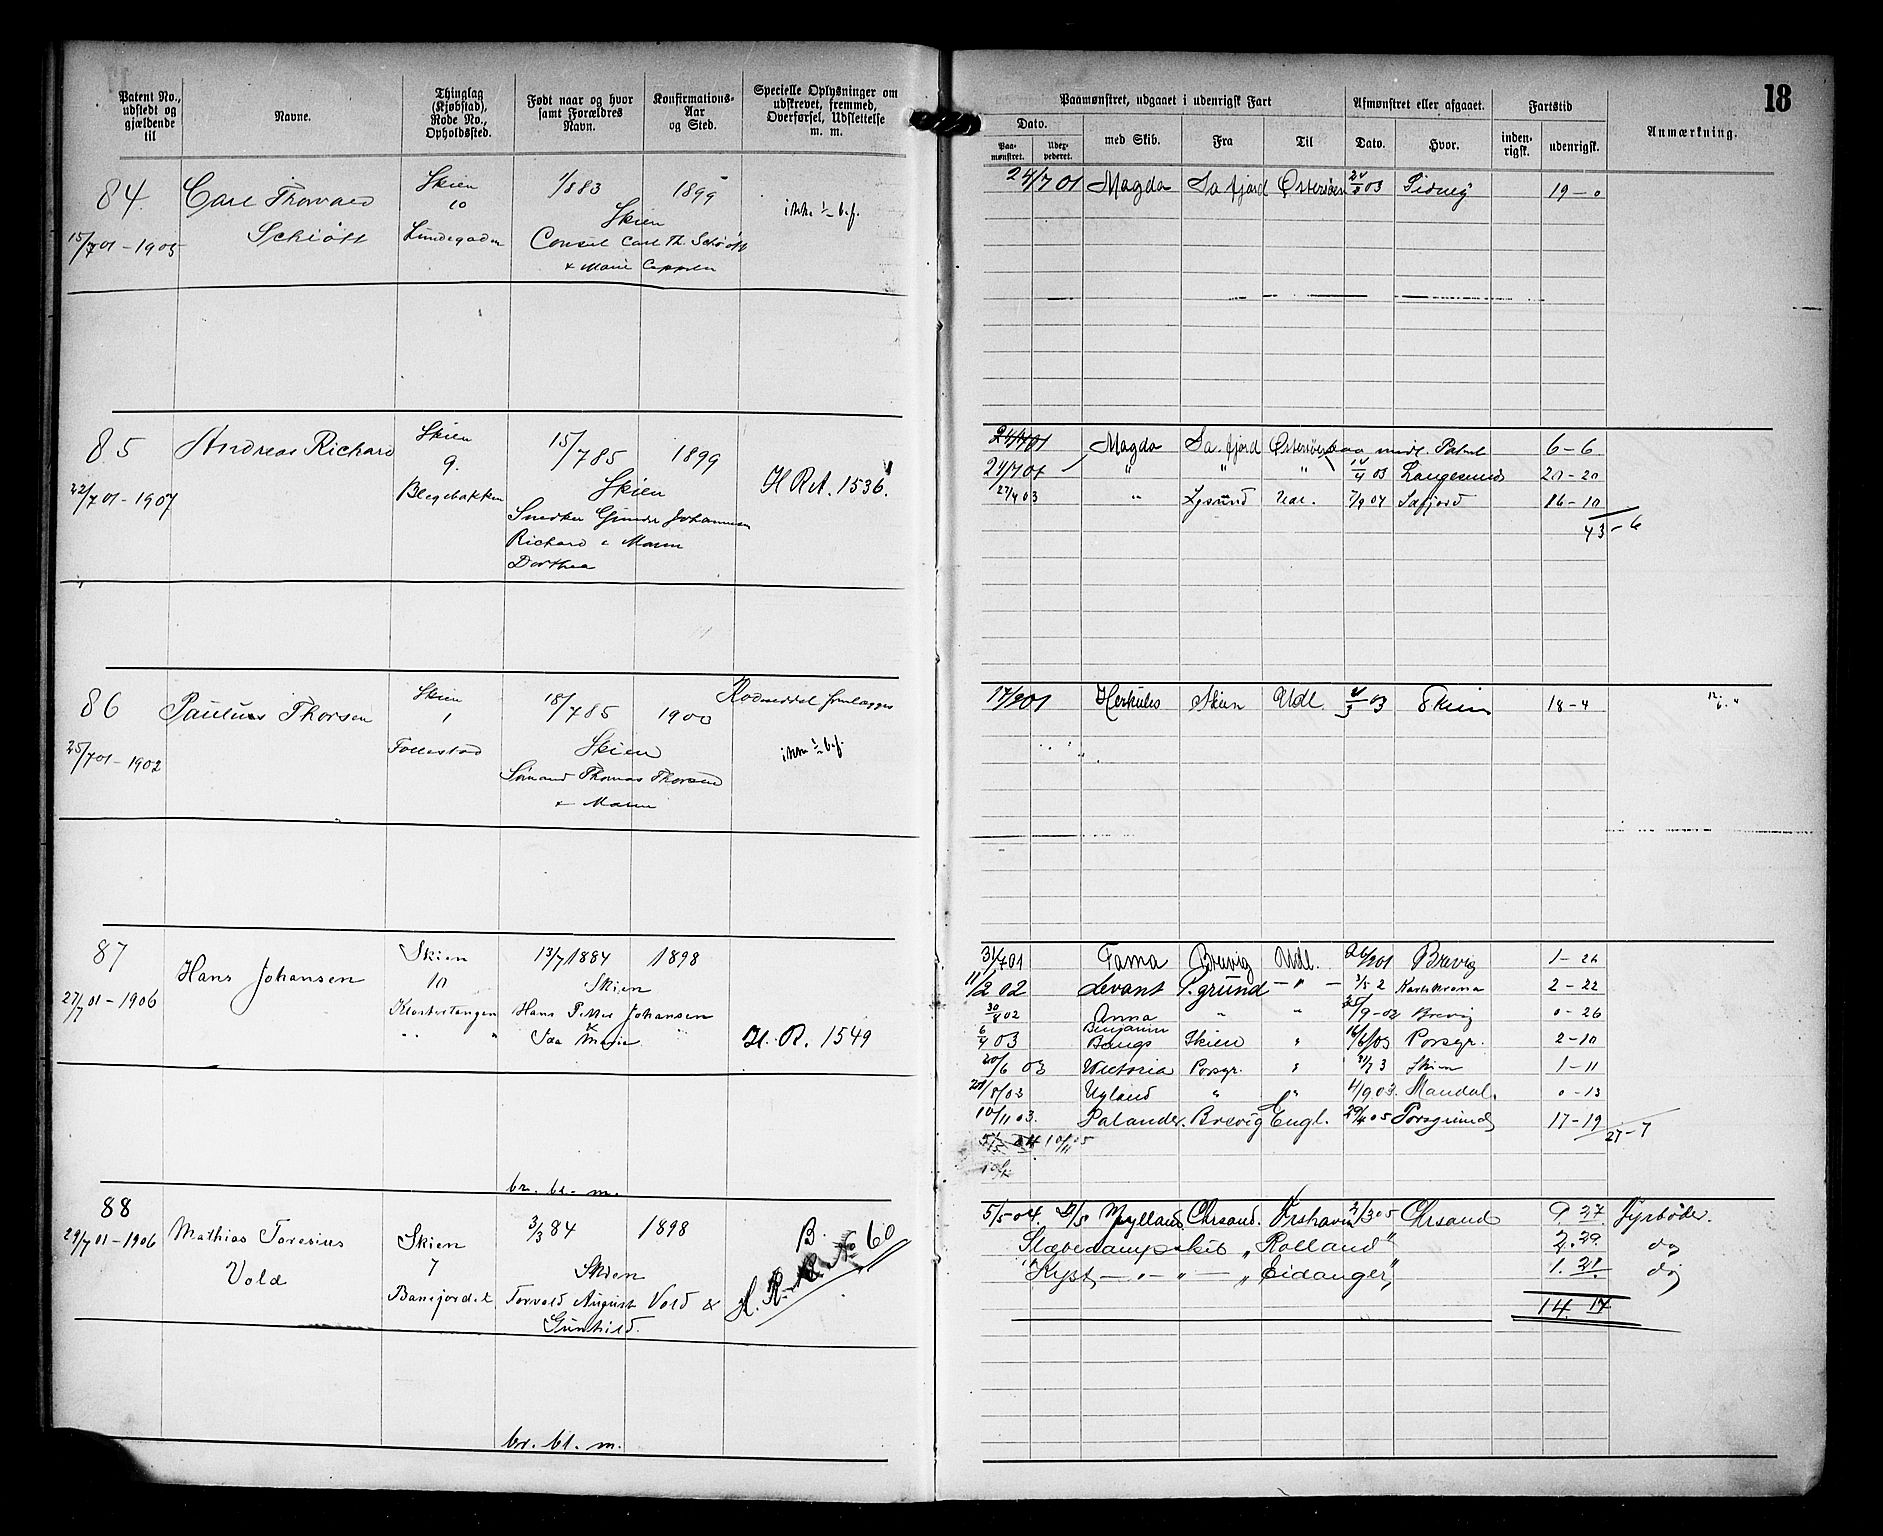 18
Patent No., udstedt og gjældende til
Navne.
Thinglag (Kjøbstad), Rode No., Opholdssted.
Født naar og hvor samt Forældres Navn.
Konfirmations-Aar og Sted.
Specielle Oplysninger om udskrevet, fremmed, Overførsel, Udslettelse m. m.
Paamønstret, udgaaet i udenrigsk Fart
Afmønstret eller afgaaet.
Fartstid
Anmærkning.
Dato.
Paamønstret.
med Skib.
Fra
Til
Dato.
Hvor.
indenrigsk.
udenrigsk.
84
Carl Thorvald Schiött
Skien
10
Lundegaden
1/8 83
1899
Skien
Consul Carl Th. Schiött
& Marie Cappelen
15/7 01 - 1905
24/7 01 Magda Sa.fjord Østersøen 03 19 - 0
85
Andreas Richard
Skien
9.
Blegebakken
15/7 85
1899
Skien
Snedker Johannesen
Richard & Maren
Dorthea
22/7 01 - 1907
H Ret. 1536.
24/7 01 Magda Sa.fjord Østersøen paa midl. Patent 6 - 6
24/7 01 " " " 03 Langesund 20 - 20
27/4 03 " L.sund Udl. 7/9 04 Sa.fjord 16 - 10
43 - 6
86
Paulus Thorsen
Skien
1
Follestad
18/7 85
1900
Skien
Sømand Thomas Thorsen
& Maren
25/7 01 - 1902
17/9 01 Herkules Skien Udl. 03 Skien 18 - 4
87
Hans Johansen
Skien
10
Klostertangen
13/7 1884
1898
Skien
Hans Petter Johansen
& Maria
27/7 01 - 1906
H. R. 1549
31/7 01 Fama Brevig Udl. 26/9 01 Brevig 1 - 26
11/2 02 Levant P.grund - " - 3/5 2 Karlskrona 2 - 22
30/8 02 Anna " " 25/9 - 02 Brevig 0 - 26
6/4 03 Benjamin Bangs Skien " 16/6 03 Porsgr. 2 - 10
20/6 03 Victoria Porsgr. " 3 Skien 1 - 11
8/03 Ugland " " 4/9 03. Mandal. 0 - 13
10/11 03. Palander. Brevig Engl. 29/4 05 Porsgrund 17 - 19
27 - 7
br. bl. m.
88
Mathias Toresius Vold
Skien
7
Banejordet
3/3 84
1898
Skien
Torvald August Vold &
Gunhild.
29/7 01 - 1906
B.
H. R. No 60
5/5 04. Jylland Chrsand. 2/3 05 Chrsand 9. 27. Fyrbøder.
Slæbedampskib "Rolland" 2. 29. do
Kyst - " - " - "Eidanger" 1. 21. do
14. 17
br. bl. m.